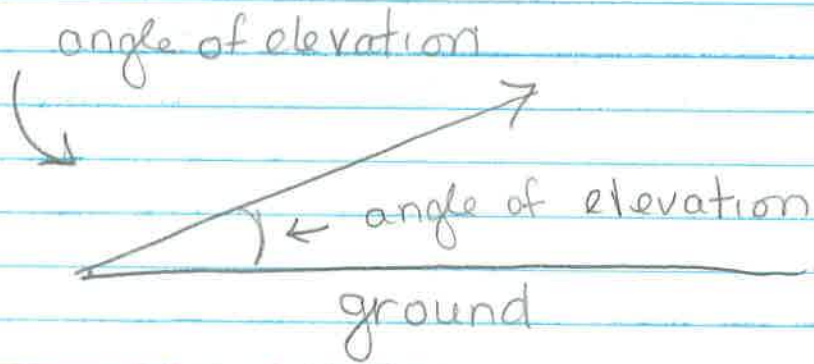 angle of elevation
← angle of elevation
ground